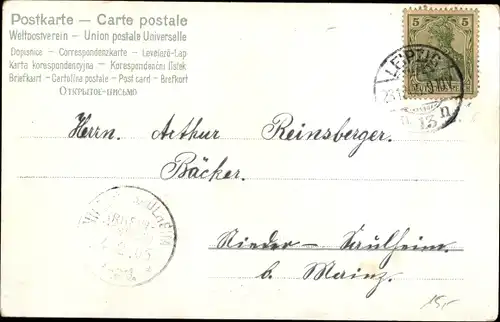 Postkarte — Carte postale
Weltpostverein – Union postale Universelle
Dopisnice – Correspondenzkarte – Levelező-Lap
Karta korespondencyjna – Korespondenční lístek
Briefkaart – Cartolina postale – Post card – Brefkort
Открытое письмо
5 5
LEIPZIG
13
Herrn. Arthur Reinsberger.
Bäcker.
Nieder-Saulheim
b. Mainz.
15,-